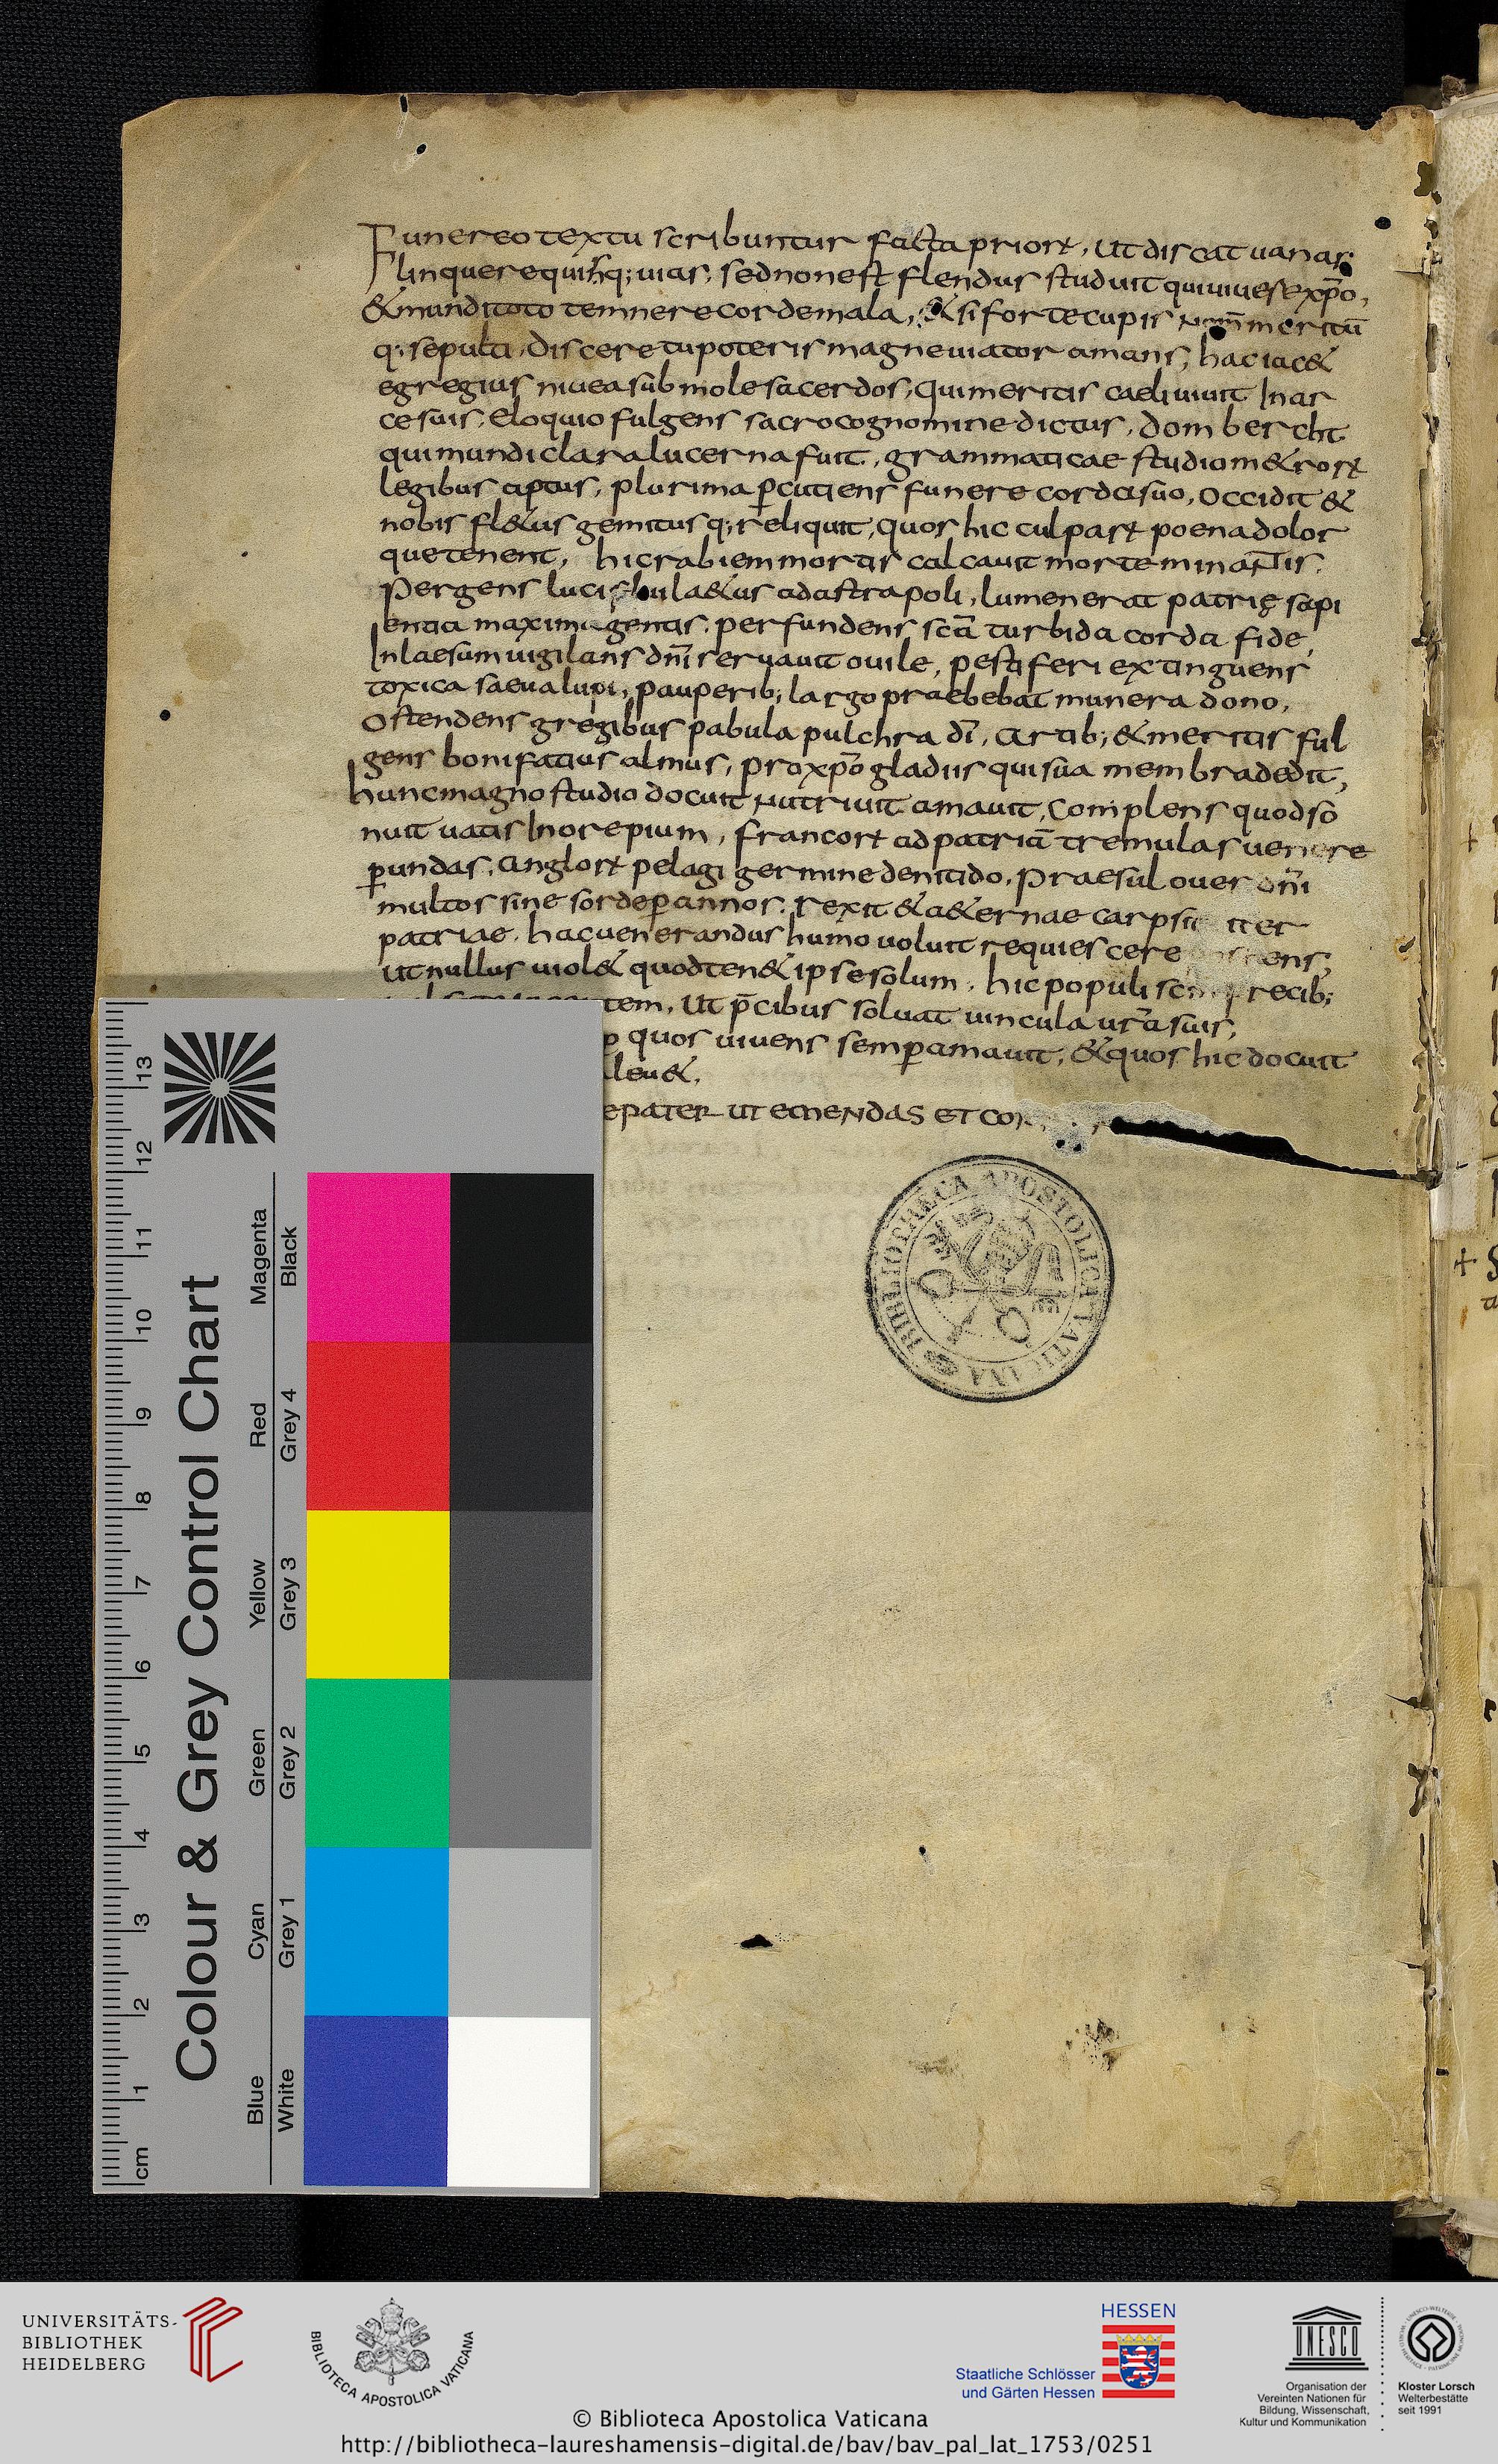 Funereo textu scribuntur facta priorꝝ, ut discat uanas
linquere quisq; uias, sed non est flendus studuit qui uiuuere xp̄o,
& mundi toto temnere corde mala, & si forte cupis meritū
q; sepulti, discere tu poteris magne uiator amans, hac iac&
egregius niuea sub mole sacerdos, qui meritis caeli uiuit In ar
ce suis, eloquio fulgens sacro cognomine dictus, dombercht
qui mundi clara lucerna fuit, grammaticae studio m&rorꝝ
legibus aptus, plurima p̄cutiens funere corda suo, occidit &
nobis fl&us gemitusq; reliquit, quos hic culparꝝ poena dolor
que tenent, hic rabiem mortis calcauit morte minantis,
pergens lucis la&us ad astra poli, lumen erat patrię sapi
entia maxima gentis, perfundens scā turbida corda fide,
Inlaesum uigilans dn̄i seruauit ouile, pestiferi extinguens
toxica saeua lupi, pauperib; largo praebebat munera dono,
ostendens gregibus pabula pulchra dī, artib; & meritis ful
gens bonifatius almus, pro xp̄o gladiis qui sua membra dedit,
hunc magno studio docuit nutriuit amauit, complens quod so
nuit uatis In ore pium, francorꝝ ad patriā tremulas uenere
p̄ undas, anglorꝝ pelagi germine de nitido, praesul oues dn̄i
multos sine sorde p̄ annos, rexit & a&ernae carpsit iter
patriae, hac uenerandus humo uoluit requiescere
ut nullus uiol& quod ten& ipse solum, hic populi recib;
tem, ut p̄cibus soluat uincula ur̄a suis,
quos uiuens semp̄ amauit, & quos hic docuit
leu&,
pater ut emendas et
BIBLIOTHECA APOSTOLICA VATICANA
Colour & Grey Control Chart
Magenta Black
Red Grey 4
Yellow Grey 3
Green Grey 2
Cyan Grey 1
Blue White
13
12
11
10
9
8
7
6
5
4
3
2
1
cm
UNIVERSITÄTS-
BIBLIOTHEK
HEIDELBERG
BIBLIOTECA APOSTOLICA VATICANA
HESSEN
Staatliche Schlösser
und Gärten Hessen
UNESCO
Organisation der
Vereinten Nationen für
Bildung, Wissenschaft,
Kultur und Kommunikation
Kloster Lorsch
Welterbestätte
seit 1991
© Biblioteca Apostolica Vaticana
http://bibliotheca-laureshamensis-digital.de/bav/bav_pal_lat_1753/0251